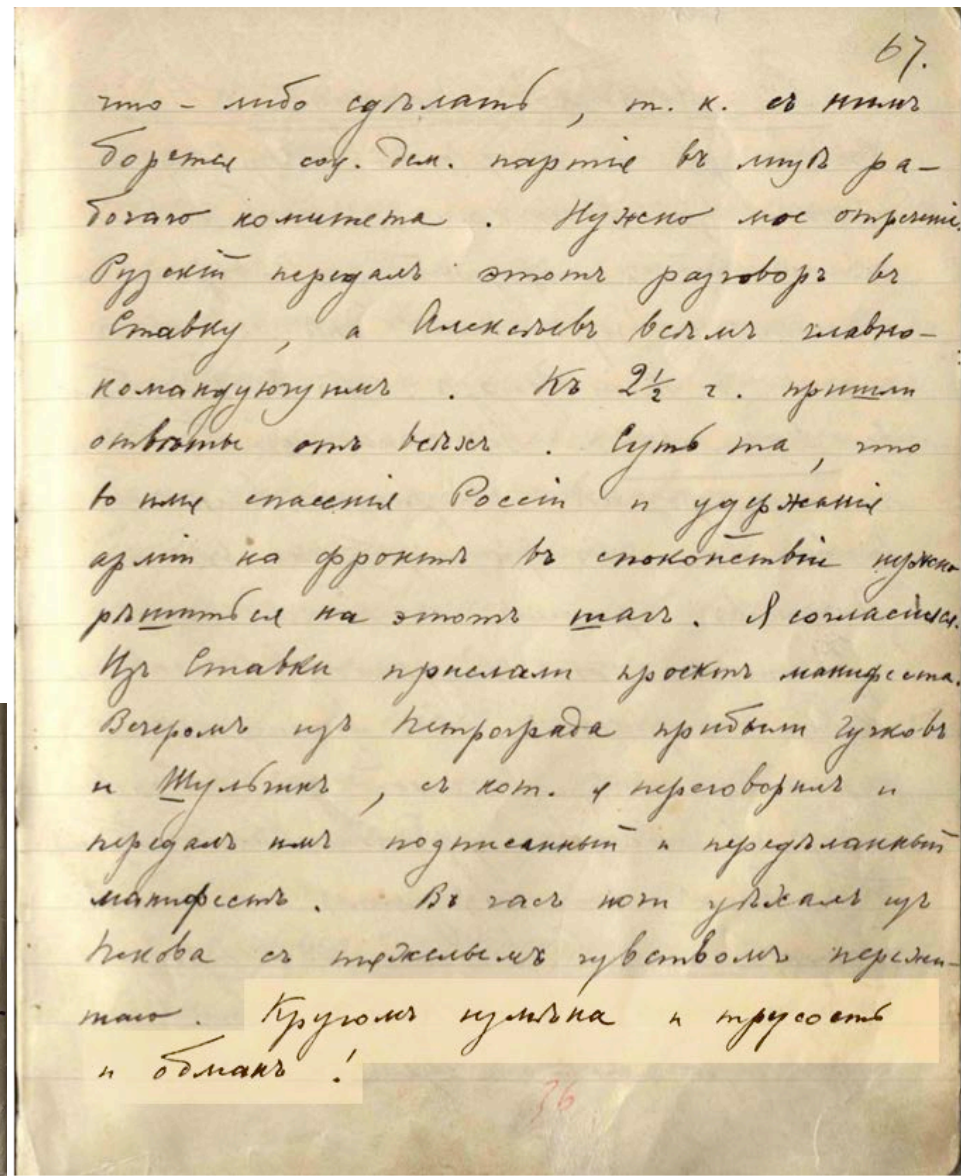 67.
что-либо сдѣлать, т. к. съ нимъ
борется соц. дем. партія въ лицѣ ра-
бочаго комитета. Нужно мое отреченіе.
Рузскій передалъ этотъ разговоръ въ
Ставку, а Алексѣевъ всѣмъ главно-
командующимъ. Къ 2½ ч. пришли
отвѣты отъ всѣхъ. Суть та, что
во имя спасенія Россіи и удержанія
арміи на фронтѣ въ спокойствіи нужно
рѣшиться на этотъ шагъ. Я согласился.
Изъ Ставки прислали проектъ манифеста.
Вечеромъ изъ Петрограда прибыли Гучковъ
и Шульгинъ, съ кот. я переговорилъ и
передалъ имъ подписанный и передѣланный
манифестъ. Въ часъ ночи уѣхалъ изъ
Пскова съ тяжелымъ чувствомъ пережи-
таго. Кругомъ измѣна и трусость
и обманъ!
36